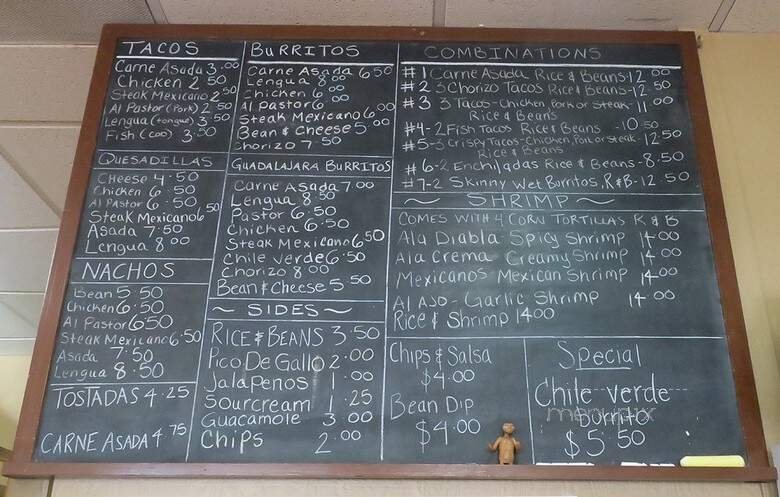 TACOS
Carne Asada 3.00
Chicken 2 50
Steak Mexicano 2 50
Al Pastor (Pork) 2 50
Lengua (tongue) 3.50
Fish (Cod) 3.50
QUESADILLAS
CHeese 4.50
Chicken 6.50
Al Pastor 6.50
Steak Mexicano 6 50
Asada 7.50
Lengua 8 00
NACHOS
Bean 5.50
Chicken 6.50
Al Pastor 6 50
Steak Mexicano 6.50
Asada 7.50
Lengua 8.50
TOSTADAS 4.25
CARNE ASADA 4 75
BURRITOS
Carne Asada 6 50
Lengua 8 00
Chicken 6 00
Al Pastor 6 00
Steak Mexicano 6 00
Bean & Cheese 5 00
Chorizo 7 50
GUADALAJARA BURRITOS
Carne Asada 7.00
Lengua 8.50
Pastor 6.50
Chicken 6.50
Steak Mexicano 6 50
Chile verde 6.50
Chorizo 8 00
Bean & Cheese 5.50
~ SIDES ~
RICE & BEANS 3.50
Pico De Gallo 2.00
Jalapenos 1.00
Sourcream 1.25
Guacamole 3.00
Chips 2.00
COMBINATIONS
#1 Carne Asada Rice & Beans-12 00
#2 3 Chorizo Tacos Rice & Beans-12 50
#3 3 Tacos-Chicken, Pork or Steak- 11 00
Rice & Beans
#4-2 Fish Tacos Rice & Beans -10 50
#5-3 Crispy Tacos-Chicken, Pork or Steak-12.50
Rice & Beans
#6-2 Enchiladas Rice & Beans-8.50
#7-2 Skinny Wet Burritos, R&B-12.50
~ SHRIMP ~
COMES WITH 4 CORN TORTILLAS R & B
Ala Diabla Spicy Shrimp 14 00
Ala Crema Creamy Shrimp 14 00
Mexicanos-Mexican Shrimp 14 00
Al AJO-Garlic Shrimp 14 00
Rice & Shrimp 14 00
Chips & Salsa
$4.00
Bean Dip
$4.00
Special
Chile verde
Burrito
$5.50
menupix